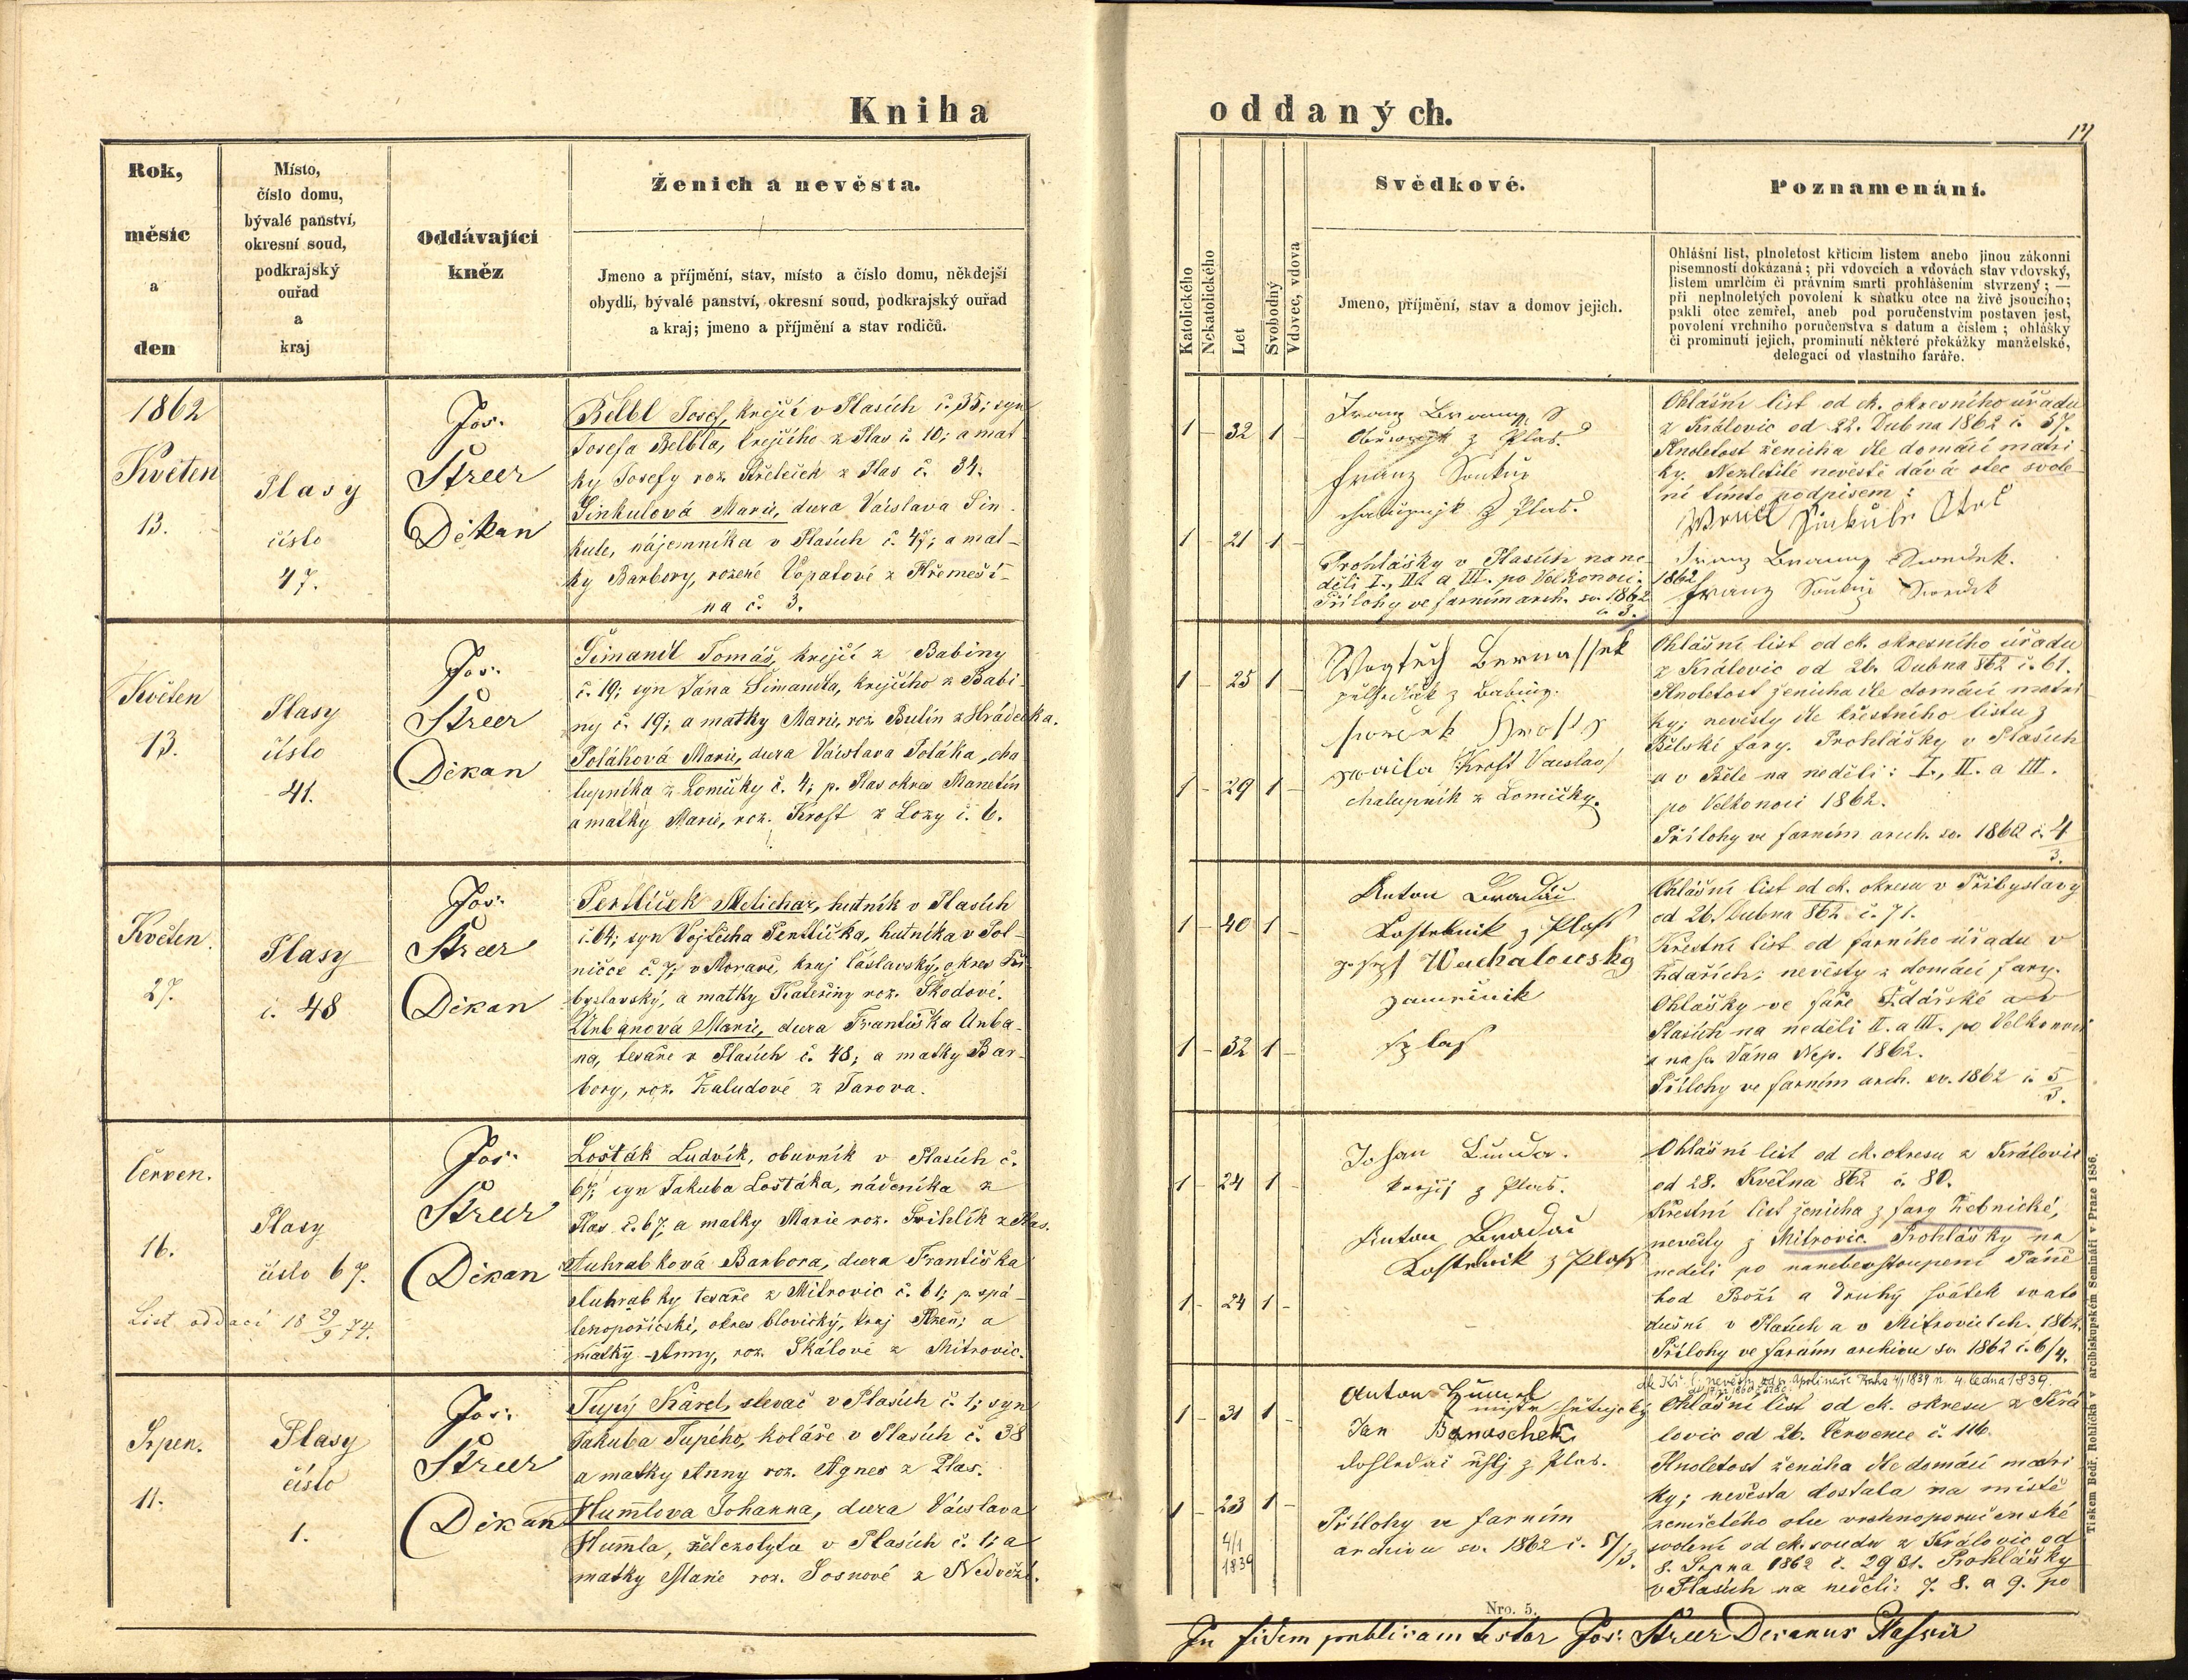 Kniha oddaných.
17
Rok,
měsíc
a
den
Místo,
číslo domu,
bývalé panství,
okresní soud,
podkrajský
ouřad
a
kraj
Oddávající
kněz
Ženich a nevěsta.
Jmeno a příjmění, stav, místo a číslo domu, někdejší
obydlí, bývalé panství, okresní soud, podkrajský ouřad
a kraj; jmeno a příjmění a stav rodičů.
Katolického
Nekatolického
Let
Svobodný
Vdovec, vdova
Svědkové.
Jmeno, příjmění, stav a domov jejich.
Poznamenání.
Ohlášní list, plnoletost křticím listem anebo jinou zákonní
písemností dokázaná; při vdovcích a vdovách stav vdovský,
listem umrlčím či právním smrti prohlášením stvrzený; —
při neplnoletých povolení k sňatku otce na živě jsoucího;
pakli otec zemřel, aneb pod poručenstvím postaven jest,
povolení vrchního poručenstva s datum a číslem; ohlášky
či prominutí jejich, prominutí některé překážky manželské,
delegací od vlastního faráře.
1862
Květen
13.
Plasy
číslo
47.
Jos.
Streer
Děkan
Bělbl Josef, krejčí v Plasích č. 35; syn
Josefa Belbla, krejčího z Plas č. 10; a mat
ky Josefy roz. Střeleček z Plas č. 34.
Sinkulová Marie, dcera Václava Sin
kule, nájemníka v Plasích č. 47; a mat-
ky Barbory, rozené Vopatové z Křemeší-
na č. 3.
1 – 32 1 –
1 – 21 1 –
Franz
z Plas.
Franz
z Plas.
Prohlášky v Plasích na ne
děli I., II. a III. po Velkonoci 1862
Přílohy ve farním arch. sv. 1862
č. 3.
Ohlášní list od ck. okresního úřadu
z Královic od 22. Dubna 1862 č. 57.
Plnoletost ženicha dle domácí matri
ky. Nezletilé nevěstě dává otec svole
ní tímto podpisem:
Sinkule Otec
Franz
Franz
Květen
13.
Plasy
číslo
41.
Jos.
Streer
Děkan
Šimandl Tomáš, krejčí z Babiny
č. 19; syn Jána Šimandla, krejčího z Babi
ny č. 19; a matky Marie, roz. Bulín z Hrádecka.
Poláková Marie, dcera Václava Poláka, cha
lupníka z Lomičky č. 4; p. Plas okres Manetín
a matky Marie, roz. Kroft z Lozy č. 6.
1 – 25 1 –
1 – 29 1 –
z Babiny.
Kroft Vaclav
chalupník z Lomičky.
Ohlášní list od ck. okresního úřadu
z Královic od 26. Dubna 862 č. 61.
Plnoletost ženicha dle domácí matri
ky; nevěsty dle křestního listu z
Bělské fary. Prohlášky v Plasích
a v Běle na neděli: I., II. a III.
po Velkonoci 1862.
Přílohy ve farním arch. sv. 1862 č. 4/3.
Květen.
27.
Plasy
č. 48
Jos.
Streer
Děkan
Pertlíček Melichar, hutník v Plasích
č. 64; syn Vojtěcha Pertlíčka, hutníka v Pol-
ničce č. 7; v Moravě, kraj čáslavský, okres Při
byslavský, a matky Kateřiny roz. Škodové.
Urbanová Marie, dcera Františka Urba-
na, tesaře v Plasích č. 48; a matky Bar
bory, roz. Žaludové z Tarova.
1 – 40 1 –
1 – 32 1 –
Anton Bradáč
Kostelnik z Plass
Josef Wachalousky
zámečník
z Plas
Ohlášní list od ck. okresu v Přibyslavy
od 26. Dubna 862 č. 71.
Křestní list od farního úřadu v
Ždařích; nevěsty z domácí fary.
Ohlášky ve faře Ždářské a v
Plasích na neděli II. a III. po Velkonoci
a na sv. Jána Nep. 1862.
Přílohy ve farním arch. sv. 1862 č. 5/3.
Červen.
16.
Plasy
číslo 67.
List oddací 18 29/9 74.
Jos.
Streer
Děkan
Lošták Ludvík, obuvník v Plasích č.
67; syn Jakuba Loštáka, nádeníka z
Plas č. 67, a matky Marie roz. Švihlík z Plas.
Auhrabková Barbora, dcera Františka
Auhrabky tesaře z Mitrovic č. 61; p. spá-
lenopoříčské, okres blovický, kraj Plzeň; a
matky Anny, roz. Skálové z Mitrovic.
1 – 24 1 –
1 – 24 1 –
Johan
krejčí z Plas.
Anton Bradáč
Kostelnik z Plass
Ohlášní list od ck. okresu z Královic
od 28. Května 862 č. 80.
Křestní list ženicha z fary Žebnické,
nevěsty z Mitrovic. Prohlášky na
neděli po nanebevstoupení Páně
hod Boží a druhý svátek svato
dušní v Plasích a v Mitrovicích. 1862.
Přílohy ve farním archivu sv. 1862 č. 6/4.
Srpen.
11.
Plasy
číslo
1.
Jos.
Streer
Děkan
Tupý Karel, slevač v Plasích č. 1; syn
Jakuba Tupého, koláře v Plasích č. 38
a matky Anny roz. Agnes z Plas.
Humlova Johanna, dcera Václava
Humla, želez­olytce v Plasích č. 1; a
matky Marie roz. Sosnové z Nedvězí.
1 – 31 1 –
1 – 23 1 –
4/1
1839
Anton Huml
Jan Banaschek
z Plas.
Přílohy ve farním
archivu sv. 1862 č. 5/3.
dle Kř. l. nevěsty od sv. Apolináře Praha 4/1 1839 n. 4. ledna 1839.
Ohlášní list od ck. okresu z Krá
lovic od 26. Července č. 116.
Plnoletost ženicha dle domácí matri
ky; nevěsta dostala na místě
zemřelého otce vrchnoporučenské
svolení od ck. soudu z Královic od
8. Srpna 1862 č. 2931. Prohlášky
v Plasích na neděli: 7. 8. a 9. po
Nro. 5.
In fidem publicam testor Jos. Streer Decanus Plassii
Tiskem Bedř. Rohlíčka v arcibiskupském Semináři v Praze 1856.